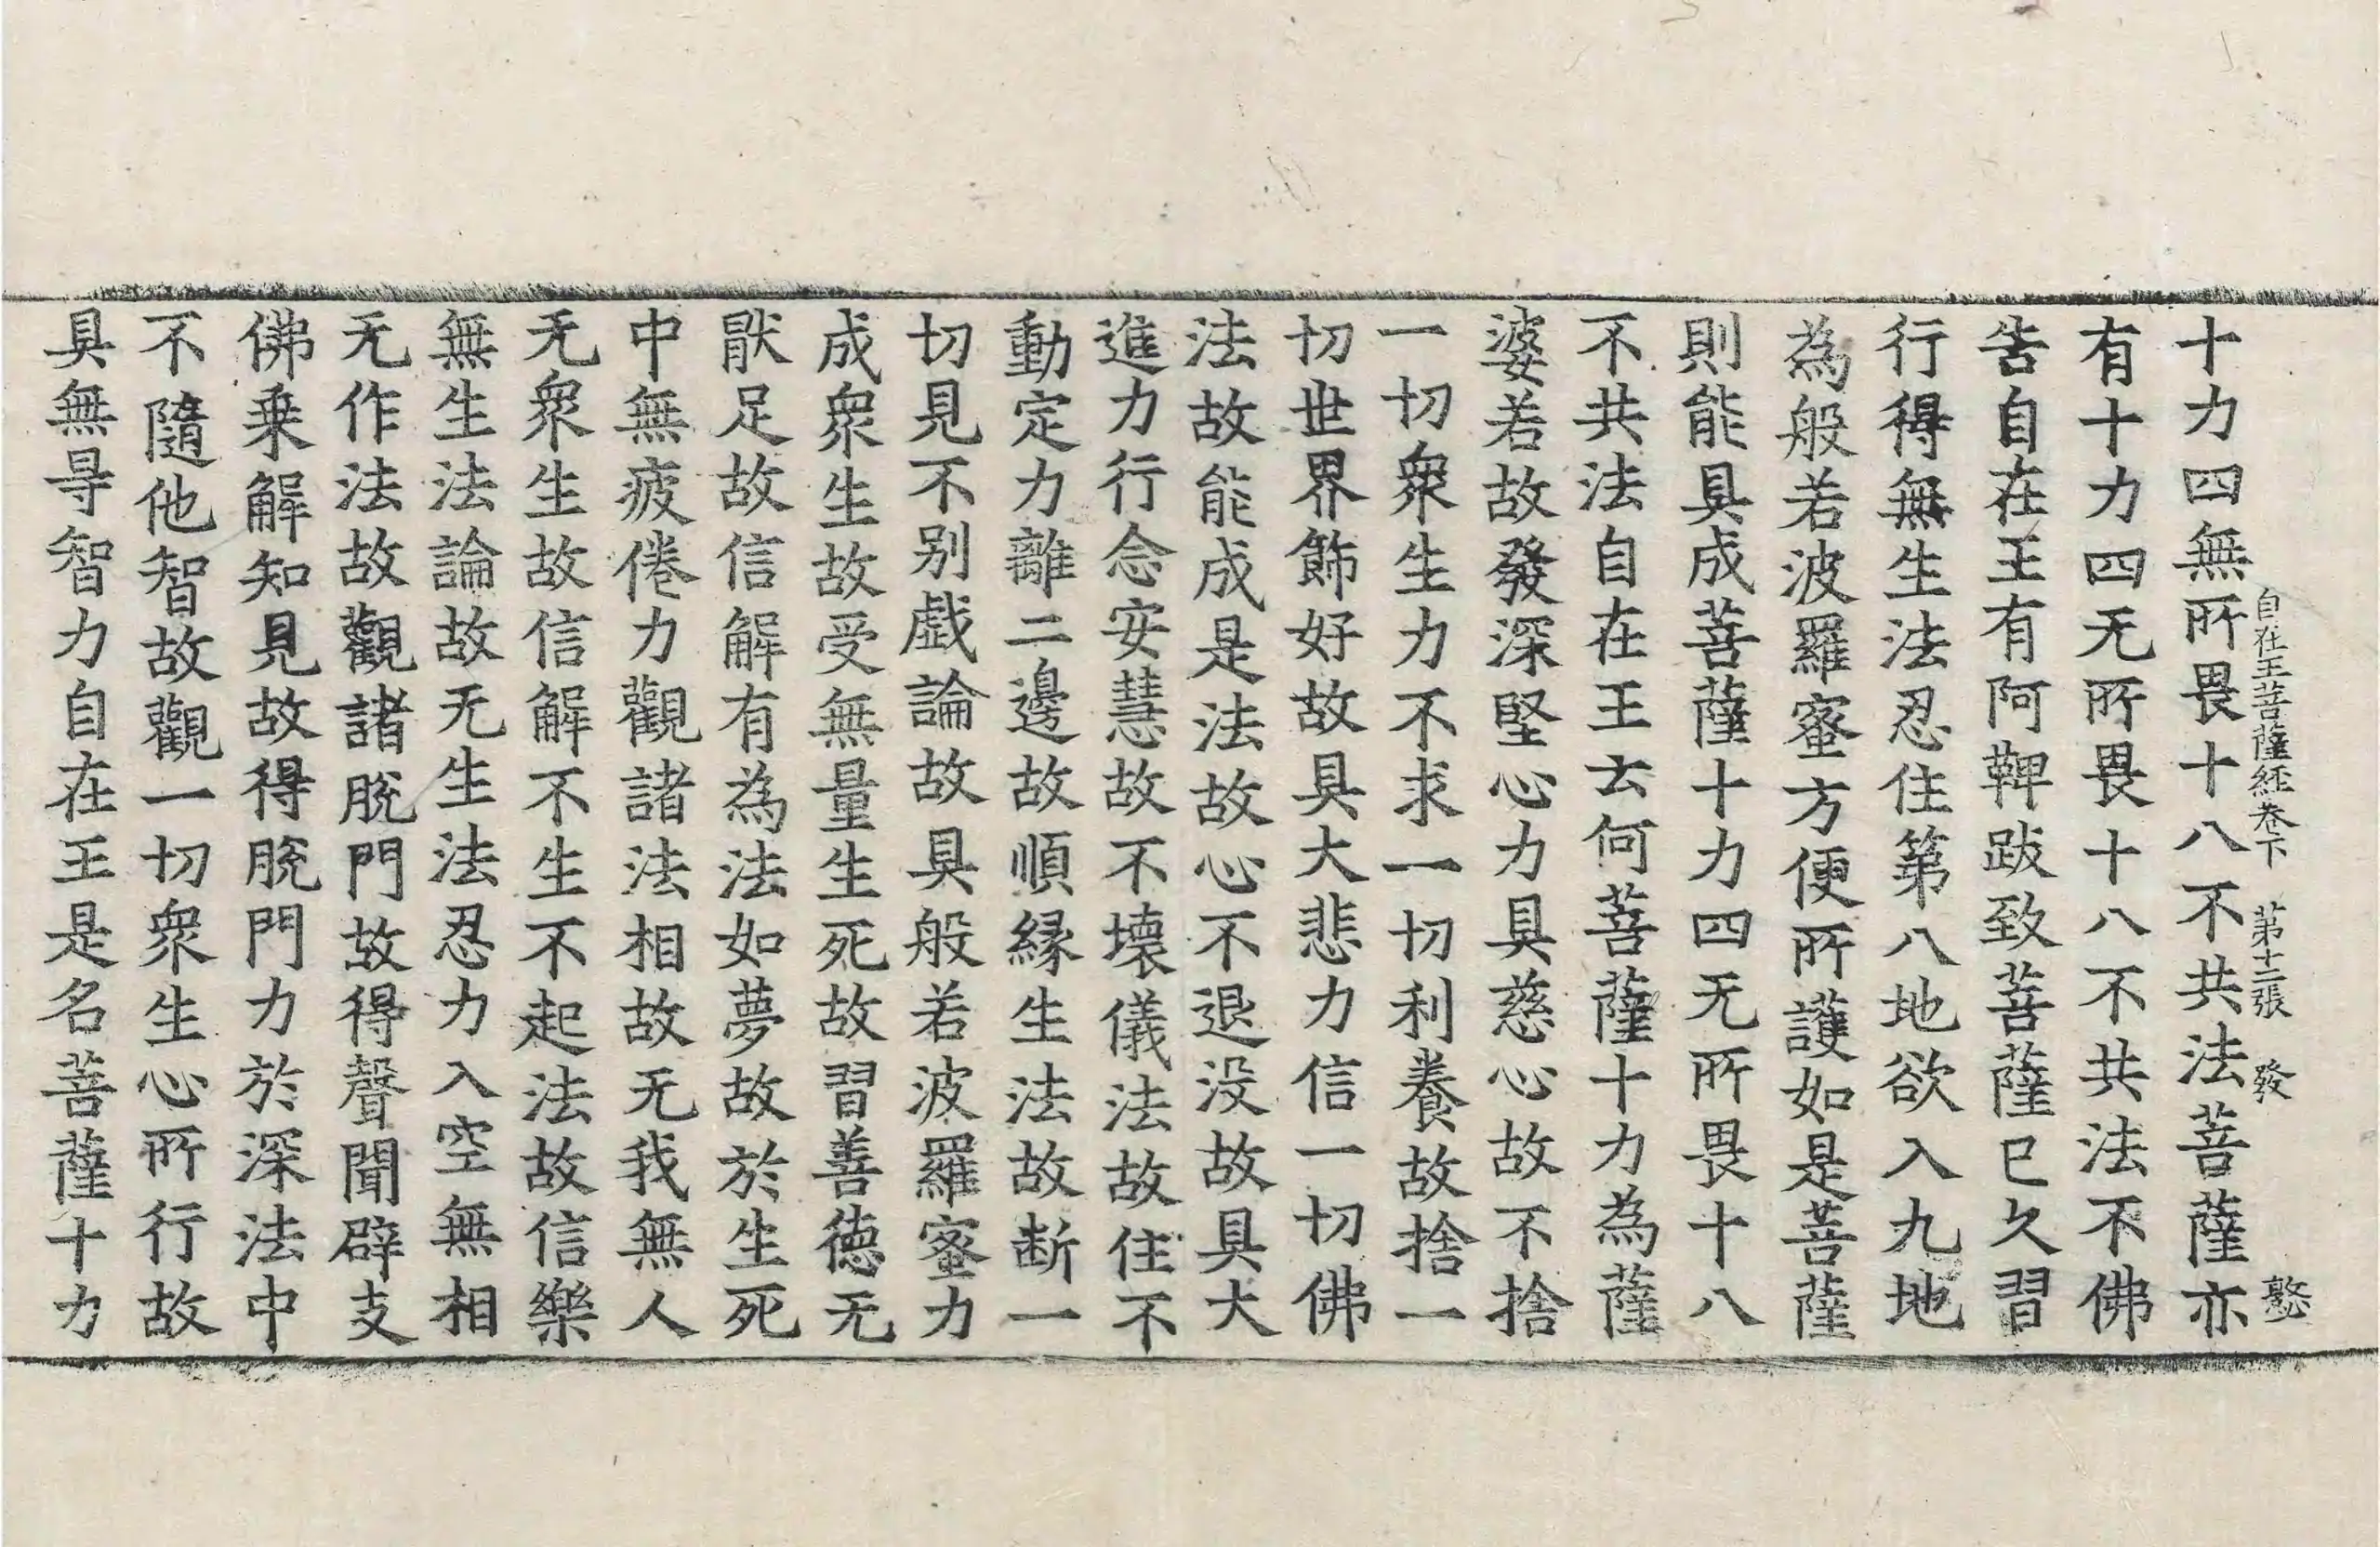 自在王菩薩経卷下 第十二張 發 憨
十力四無所畏十八不共法菩薩亦
有十力四无所畏十八不共法不佛
告自在王有阿鞞跋致菩薩已久習
行得無生法忍住第八地欲入九地
為般若波羅蜜方便所護如是菩薩
則能具成菩薩十力四无所畏十八
不共法自在王云何菩薩十力為薩
婆若故發深堅心力具慈心故不捨
一切衆生力不求一切利養故捨一
切世界飾好故具大悲力信一切佛
法故能成是法故心不退没故具大
進力行念安慧故不壞儀法故住不
動定力離二邊故順縁生法故断一
切見不别戯論故具般若波羅蜜力
成衆生故受無量生死故習善徳无
猒足故信解有為法如夢故於生死
中無疲倦力觀諸法相故无我無人
无衆生故信解不生不起法故信樂
無生法論故无生法忍力入空無相
无作法故觀諸脫門故得聲聞辟支
佛乗解知見故得脫門力於深法中
不隨他智故觀一切衆生心所行故
具無㝵智力自在王是名菩薩十力